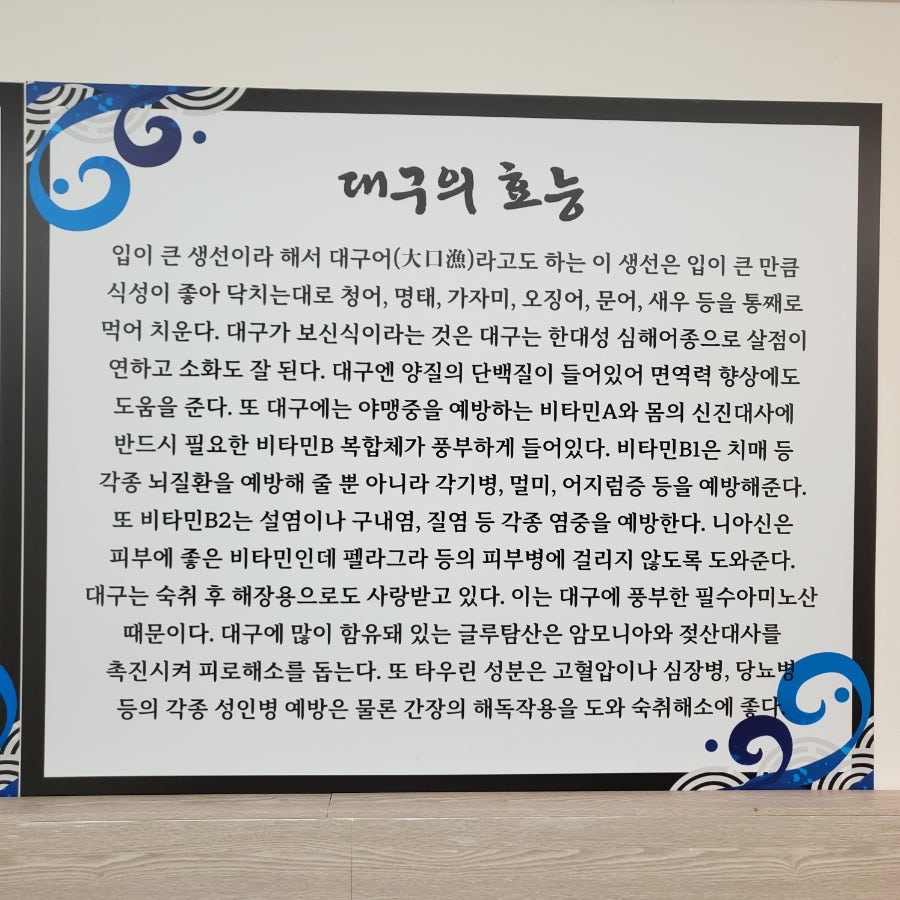 대구의 효능
입이 큰 생선이라 해서 대구어(大口漁)라고도 하는 이 생선은 입이 큰 만큼
식성이 좋아 닥치는대로 청어, 명태, 가자미, 오징어, 문어, 새우 등을 통째로
먹어 치운다. 대구가 보신식이라는 것은 대구는 한대성 심해어종으로 살점이
연하고 소화도 잘 된다. 대구엔 양질의 단백질이 들어있어 면역력 향상에도
도움을 준다. 또 대구에는 야맹중을 예방하는 비타민A와 몸의 신진대사에
반드시 필요한 비타민B 복합체가 풍부하게 들어있다. 비타민B1은 치매 등
각종 뇌질환을 예방해 줄 뿐 아니라 각기병, 멀미, 어지럼증 등을 예방해준다.
또 비타민B2는 설염이나 구내염, 질염 등 각종 염중을 예방한다. 니아신은
피부에 좋은 비타민인데 펠라그라 등의 피부병에 걸리지 않도록 도와준다.
대구는 숙취 후 해장용으로도 사랑받고 있다. 이는 대구에 풍부한 필수아미노산
때문이다. 대구에 많이 함유돼 있는 글루탐산은 암모니아와 젖산대사를
촉진시켜 피로해소를 돕는다. 또 타우린 성분은 고혈압이나 심장병, 당뇨병
등의 각종 성인병 예방은 물론 간장의 해독작용을 도와 숙취해소에 좋다.